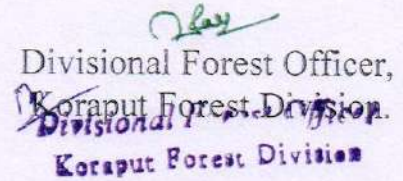 Divisional Forest Officer,
Koraput Forest Division.
Divisional Forest Officer
Koraput Forest Division